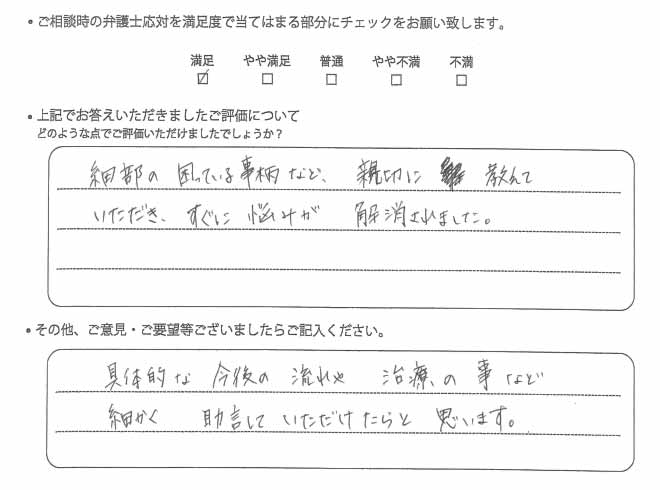 ・ご相談時の弁護士応対を満足度で当てはまる部分にチェックをお願い致します。
満足 やや満足 普通 やや不満 不満
☑ □ □ □ □
・上記でお答えいただきましたご評価について
どのような点でご評価いただけましたでしょうか？
細部の困っている事柄など、親切に教えて
いただき、すぐに悩みが解消されました。
・その他、ご意見・ご要望等ございましたらご記入ください。
具体的な今後の流れや治療、の事など
細かく助言していただけたらと思います。